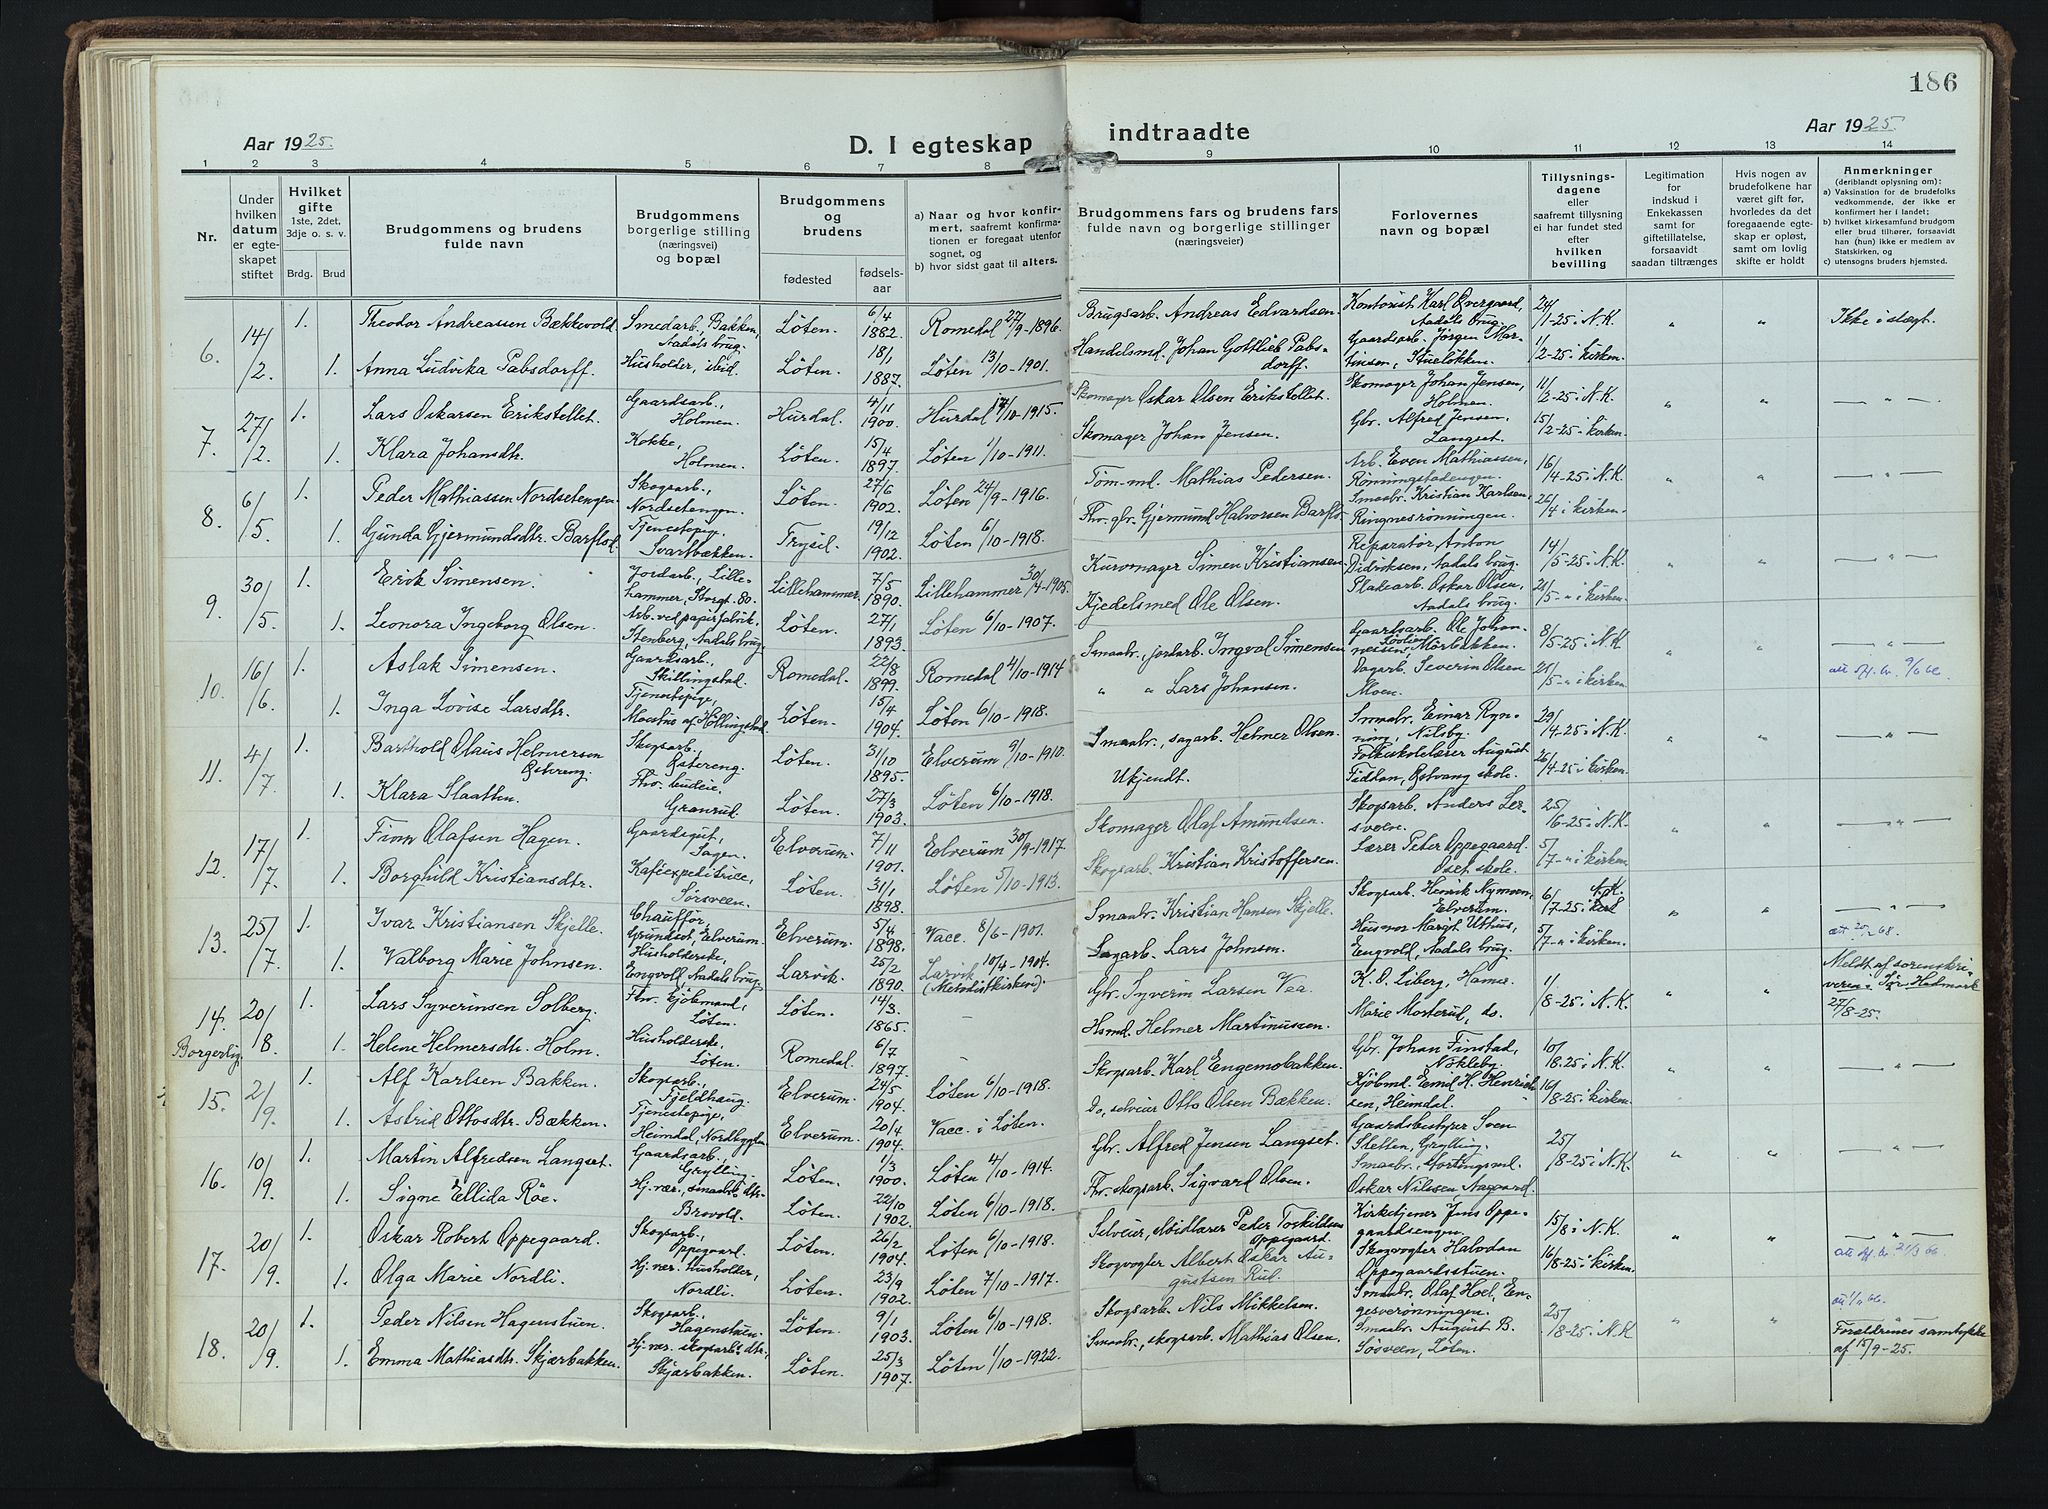 186
Aar 1925.
D. I egteskap indtraadte
Aar 1925.
1 2 3 4 5 6 7 8 9 10 11 12 13 14
Nr.
Under hvilken datum er egteskapet stiftet
Hvilket gifte 1ste, 2det, 3dje o. s. v.
Brdg. Brud
Brudgommens og brudens fulde navn
Brudgommens borgerlige stilling (næringsvei) og bopæl
Brudgommens og brudens
fødested
fødselsaar
a) Naar og hvor konfirmert, saafremt konfirmationen er foregaat utenfor sognet, og
b) hvor sidst gaat til alters.
Brudgommens fars og brudens fars fulde navn og borgerlige stillinger (næringsveier)
Forlovernes navn og bopæl
Tillysningsdagene eller saafremt tillysning ei har fundet sted efter hvilken bevilling
Legitimation for indskud i Enkekassen samt for giftetillatelse, forsaavidt saadan tiltrænges
Hvis nogen av brudefolkene har været gift før, hvorledes da det foregaaende egteskap er opløst, samt om lovlig skifte er holdt
Anmerkninger (deriblandt oplysning om):
a) Vaksinstion for de brudefolks vedkommende, der ikke er konfirmert her i landet;
b) hvilket kirkesamfund brudgom eller brud tilhører, forsaavidt han (hun) ikke er medlem av Statskirken, og
c) utensogns bruders hjemsted.
6. 14/2 1. Theodor Andreassen Bækkevold Smedarb., Bakken, Aadals brug. Løten. 6/4 1882. Romedal 27/9-1896. Brugsarb. Andreas Edvardsen. Kontorist Karl Øvergaard, Aadals Brug. 24/1-25 i N.K. " " Ikke i slegt.
1. Anna Ludvika Pabsdorff. Husholder, ibid. Løten. 18/1 1887. Løten 13/10-1901. Handelsmd. Johan Gottlieb Pabsdorff. Gaardsarb. Jørgen Martinsen, Stueløkken. 1/2-25 i kirken.
7. 27/2 1. Lars Oskarsen Erikstellet. Gaardsarb., Holmen. Hurdal. 4/11 1900. Hurdal 17/10-1915. Skomager Oskar Olsen Erikstellet. Skomager Johan Jensen, Holmen. 11/2-25 i N.K. " " — " —
1. Klara Johansdtr. Kokke, Holmen. Løten. 15/4 1897. Løten 1/10-1911. Skomager Johan Jensen. Gbr. Alfred Jensen, Langset. 15/2-25 i kirken.
8. 6/5 1. Peder Mathiassen Nordsetengen. Skogsarb., Nordsetengen. Løten. 27/6 1902. Løten 24/9-1916. Tøm.md. Mathias Pedersen. Arb. Even Mathiassen, Rønningstadengen. 16/4-25 i N.K. " " — " —
1. Gunda Gjermundsdtr. Barflod. Tjenestepig, Svartbækken. Trysil. 19/12 1902. Løten 6/10-1918. Fhv. gbr. Gjermund Halvorsen Barflo. Smaabr. Kristian Karlsen, Ringnesrønningen. 26/4 i kirken.
9. 30/5 1. Erik Simensen. Jordarb., Lillehammer, Storgt. 80. Lillehammer. 7/5 1890. Lillehammer 30/4-1905. Kurvmager Simen Kristiansen. Reparatør Anton Didriksen, Aadals brug. 14/5-25 i N.K. " " — " —
1. Leonora Ingeborg Olsen. Arb. ved papirfabrik, Stenberg, Aadals brug. Løten. 27/1 1893. Løten 6/10-1907. Kjedelsmed Ole Olsen. Pladearb. Oskar Olsen, Aadals brug. 21/5-" i kirken.
10. 16/6 1. Aslak Simensen. Gaardsarb., Skillingstad. Romedal. 22/8 1899. Romedal 4/10-1914 Smaabr., jordarb. Ingval Simensen Gaardsarb. Ole Johannessen, Mørbakken. 8/5-25 i N.K. " " — " —
1. Inga Lovise Larsdtr. Tjenestepige, Moestue af Hollingstad. Løten. 15/4 1904. Løten 6/10-1918. " " Lars Johansen. Dagarb. Severin Olsen Moen. 21/5-" i kirken.
11. 4/7 1. Barthold Olaus Helmersen Østereng. Skogsarb., Østereng. Løten. 31/10 1895. Elverum 9/10-1910. Smaabr., sagarb. Helmer Olsen. Smaabr. Einar Rynning, Nilsby. 29/14-25 i N.K. " " — " —
1. Klara Slaatten. Granrud. Løten. 27/3 1903. Løten 6/10-1918. Ukjendt. Folkeskolelærer August Tidtlan, Østvang skole. 26/4-25 i kirken.
12. 17/7 1. Finn Olafsen Hagen. Gaardsgut, Sagen. Elverum. 7/11 1901. Elverum 30/9-1917. Skomager Olaf Amundsen. Skogsarb. Anders Lersveen. 25/6-25 i N.K. " " — " —
1. Borghild Kristiansdtr. Kaféexpeditrice, Sørsveen. Løten. 31/1 1898. Løten 5/10-1913. Skogsarb. Kristian Kristoffersen. Lærer Peter Oppegaard. Oset skole. 5/7-" i kirken.
13. 25/7 1. Ivar Kristiansen Skjelle. Chauffør, Grundset, Elverum. Elverum. 5/4 1898. Vacc. 8/6-1901. Smaabr. Kristian Hansen Skjelle. Skogsarb. Henrik Nymoen, Elverum. 6/7-25 i N.K. " " — " —
1. Valborg Marie Johnsen. Husholderske, Engvold, Aadals brug. Larvik. 25/2 1890. Larvik 10/4-1904. (Metodistkirken). Sagarb. Lars Johnsen. Husmor Margit Uthus, Engvold, Aadals brug. 5/7-" i kirken.
14. Borgerlig. 20/8 1. Lars Syverinsen Solberg. Fhv. Kjøbmand, Løten. Løten. 14/3. 1865. — Gbr. Syverin Larsen Vea. K. O. Liberg, Hamar. 1/8-25 i N.K. " " Meldt af sorenskriveren i Sør Hedmark 27/8-25.
1. Helene Helmersdtr. Holm. Husholderske, Løten. Romedal. 6/7 1897. — Hsmd. Helmer Martinussen. Marie Mosterud, do.
15. 2/9 1. Alf Karlsen Bakken. Skogsarb., Fjeldhaug. Elverum. 24/5 1904. Løten 6/10-1918. Skogsarb. Karl Engemobakken. Gbr. Johan Finstad, Nokleby. 10/18.25 i N.K. " " — " —
1. Astrid Ottosdtr. Bækken. Tjenestepige, Heimdal, Nordbygden Elverum. 20/4 1904. Vacc. i Løten. Do, selveier Otto Olsen Bækken. Kjøbmd. Emil H. Henriksen, Heimdal. 16/8-25 i kirken.
16. 10/9 1. Martin Alfredsen Langset. Gaardsarb., Grylling. Løten. 1/3 1900. Løten 4/10-1914. Gbr. Alfred Jensen Langset. Gaardsbestyrer Sven Sletten, Grylling. 25/8-25 i N.K. " " — " —
1. Signe Ellida Røe. Hj. vær., smaabr.s dtr. Brovold. Løten. 22/10 1902. Løten 6/10-1918. Fhv. skogsarb. Sigvard Olsen. Smaabr., stortingsmd. Oskar Nilssen Aagaard.
17. 20/9 1. Oskar Robert Oppegaard. Skogsarb., Oppegaard. Løten. 26/2 1904. Løten 6/10-1918. Selveier, sløidlærer Peder Toskildsen Oppegaard. Kirketjener Jens Oppegaardsengen. 15/8 i N.K. " " — " —
1. Olga Marie Nordli. Hj. vær. husholder, Nordli. Løten. 23/9 1902. Løten 7/10-1917. Skogvogter Albert Oskar Augustsen Rud. Skogvogter Halvdan Oppegaardsstuen. 16/8-25 i kirken.
18. 20/9 1. Peder Nilsen Hagenstuen. Skogsarb. Hagenstuen. Løten. 9/1 1903. Løten 6/10-1918. Skogsarb. Nils Mikkelsen. Smaabr. Olaf Hoel, Engesverønningen. 25/8-25 i N.K " " — " —
1. Emma Mathiasdtr. Skjærbakken. Hj. vær. skogsarb.s dtr., Skjærbakken. Løten. 25/3 1907. Løten 1/10-1922. Smaabr., skogsarb. Mathias Olsen. Smaabr. August B. Sõoveen, Løten. Forældrenes samtykke af 15/9-25.